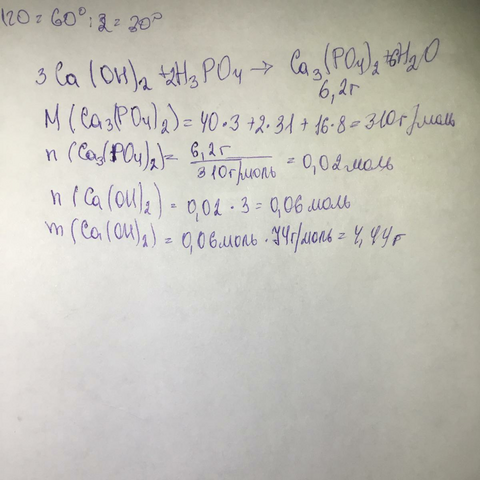 120 = 60° : 2 = 30°
3Ca(OH)2 + 2H3PO4 → Ca3(PO4)2 + 6H2O
6,2г
M(Ca3(PO4)2) = 40·3 + 2·31 + 16·8 = 310 г/моль
n(Ca3(PO4)2) = 6,2г / 310 г/моль = 0,02 моль
n(Ca(OH)2) = 0,02 · 3 = 0,06 моль
m(Ca(OH)2) = 0,06 моль · 74 г/моль = 4,44 г